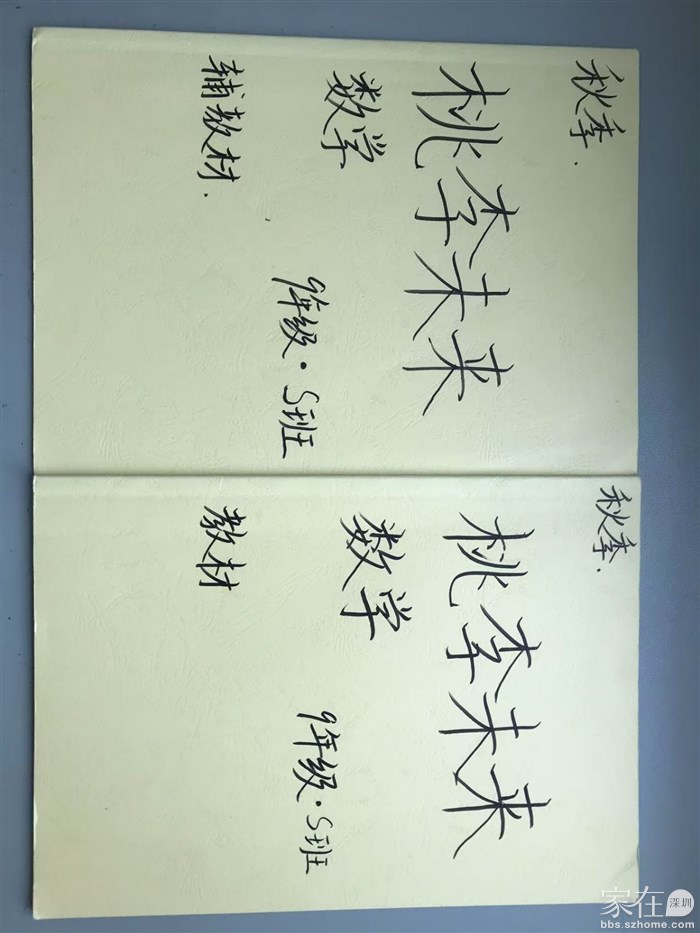 秋季.
桃李未来
数学
9年级·S班
辅教材.
秋季.
桃李未来
数学
9年级·S班
教材
家在深圳
bbs.szhome.com